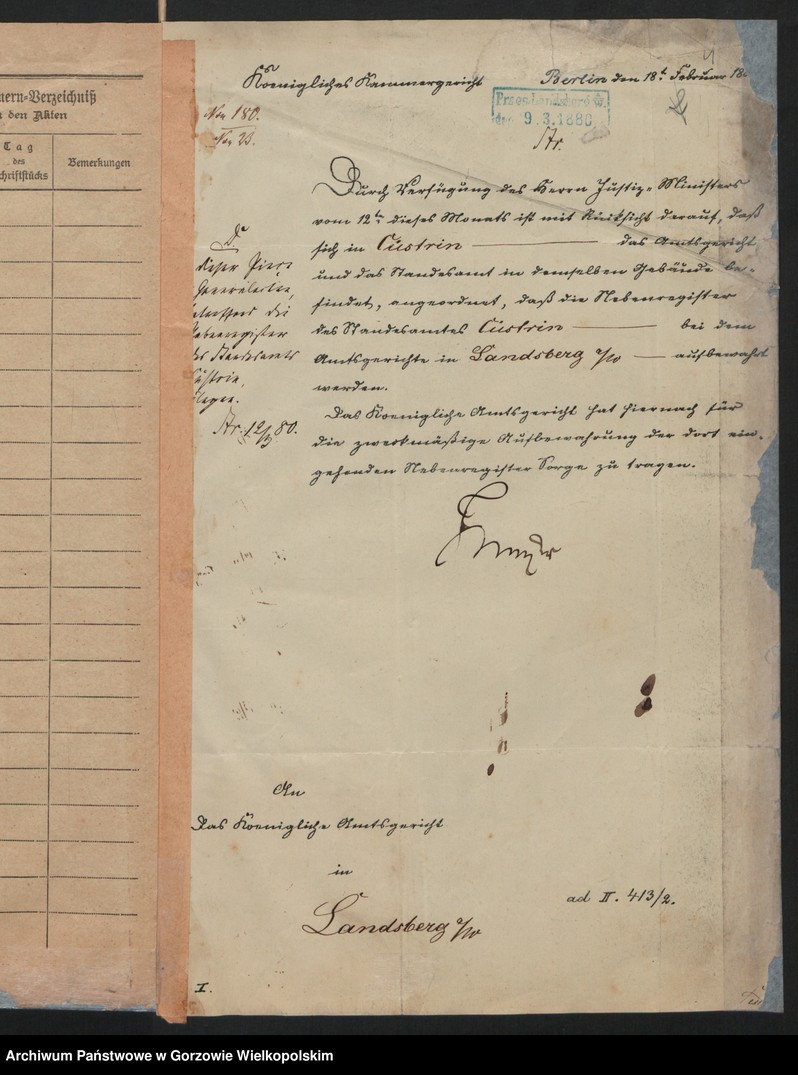 mern=Verzeichniß
den Akten
Tag
des
chriftstücks
Bemerkungen
Koenigliches Kammergericht
Berlin den 18t. Februar 18
180.
23.
Praes. Landsberg a/W.
den 9.3.1880
Str.
Durch Verfügung des Herrn Justiz=Ministers
vom 12ten dieses Monats ist mit Rücksicht darauf, daß
sich in Cüstrin das Amtsgericht
und das Standesamt in demselben Gebäude be=
findet, angeordnet, daß die Nebenregister
des Standesamtes Cüstrin bei dem
Amtsgerichte in Landsberg a/W aufbewahrt
werden.
Das Koenigliche Amtsgericht hat hiernach für
die zweckmäßige Aufbewahrung der dort ein=
gehenden Nebenregister Sorge zu tragen.
Str. 12/3 80.
An
Das Koenigliche Amtsgericht
in
Landsberg a/W
ad II. 413/2.
I.
Archiwum Państwowe w Gorzowie Wielkopolskim